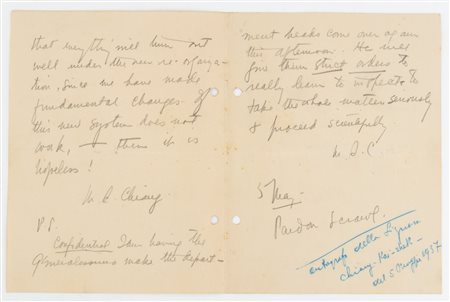 that everything will turn out
well under the new re-organiza-
tion. Since we have made
fundamental changes if
this new system does not
work, – then it is
hopeless!
M. S. Chiang
P.S.
Confidential I am having the
Generalissimo make the depart-
ment heads come over again
this afternoon. He will
give them strict orders to
really learn to inspect & to
take the whole matter seriously
& proceed scientifically
M. S. C.
5 May.
Pardon scrawl.
autografo della Signora
Chiang-Kai-shek
del 5 Maggio 1937